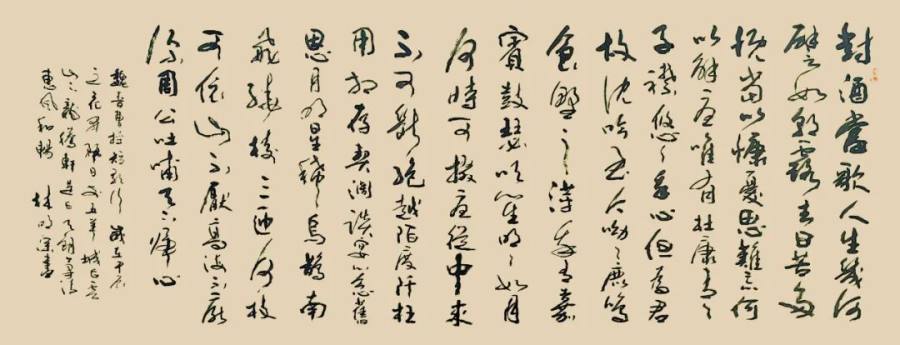 對酒當歌人生幾何
譬如朝露去日苦多
慨當以慷憂思難忘何
以解憂唯有杜康青々
子襟悠々我心但為君
故沈吟至今呦々鹿鳴
食野之萍我有嘉
賓鼓瑟吹笙明々如月
何時可掇憂從中來
不可斷絕越陌度阡枉
用相存契闊談宴心念舊
恩月明星稀烏鵲南
飛繞樹三匝何枝
可依山不厭高海不厭
深周公吐哺天下歸心
魏武曹操短歌行歲在
惠風和暢 林書